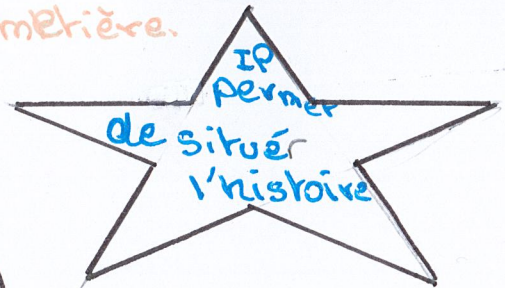 metière.
IP
permet
de situér
l'histoire